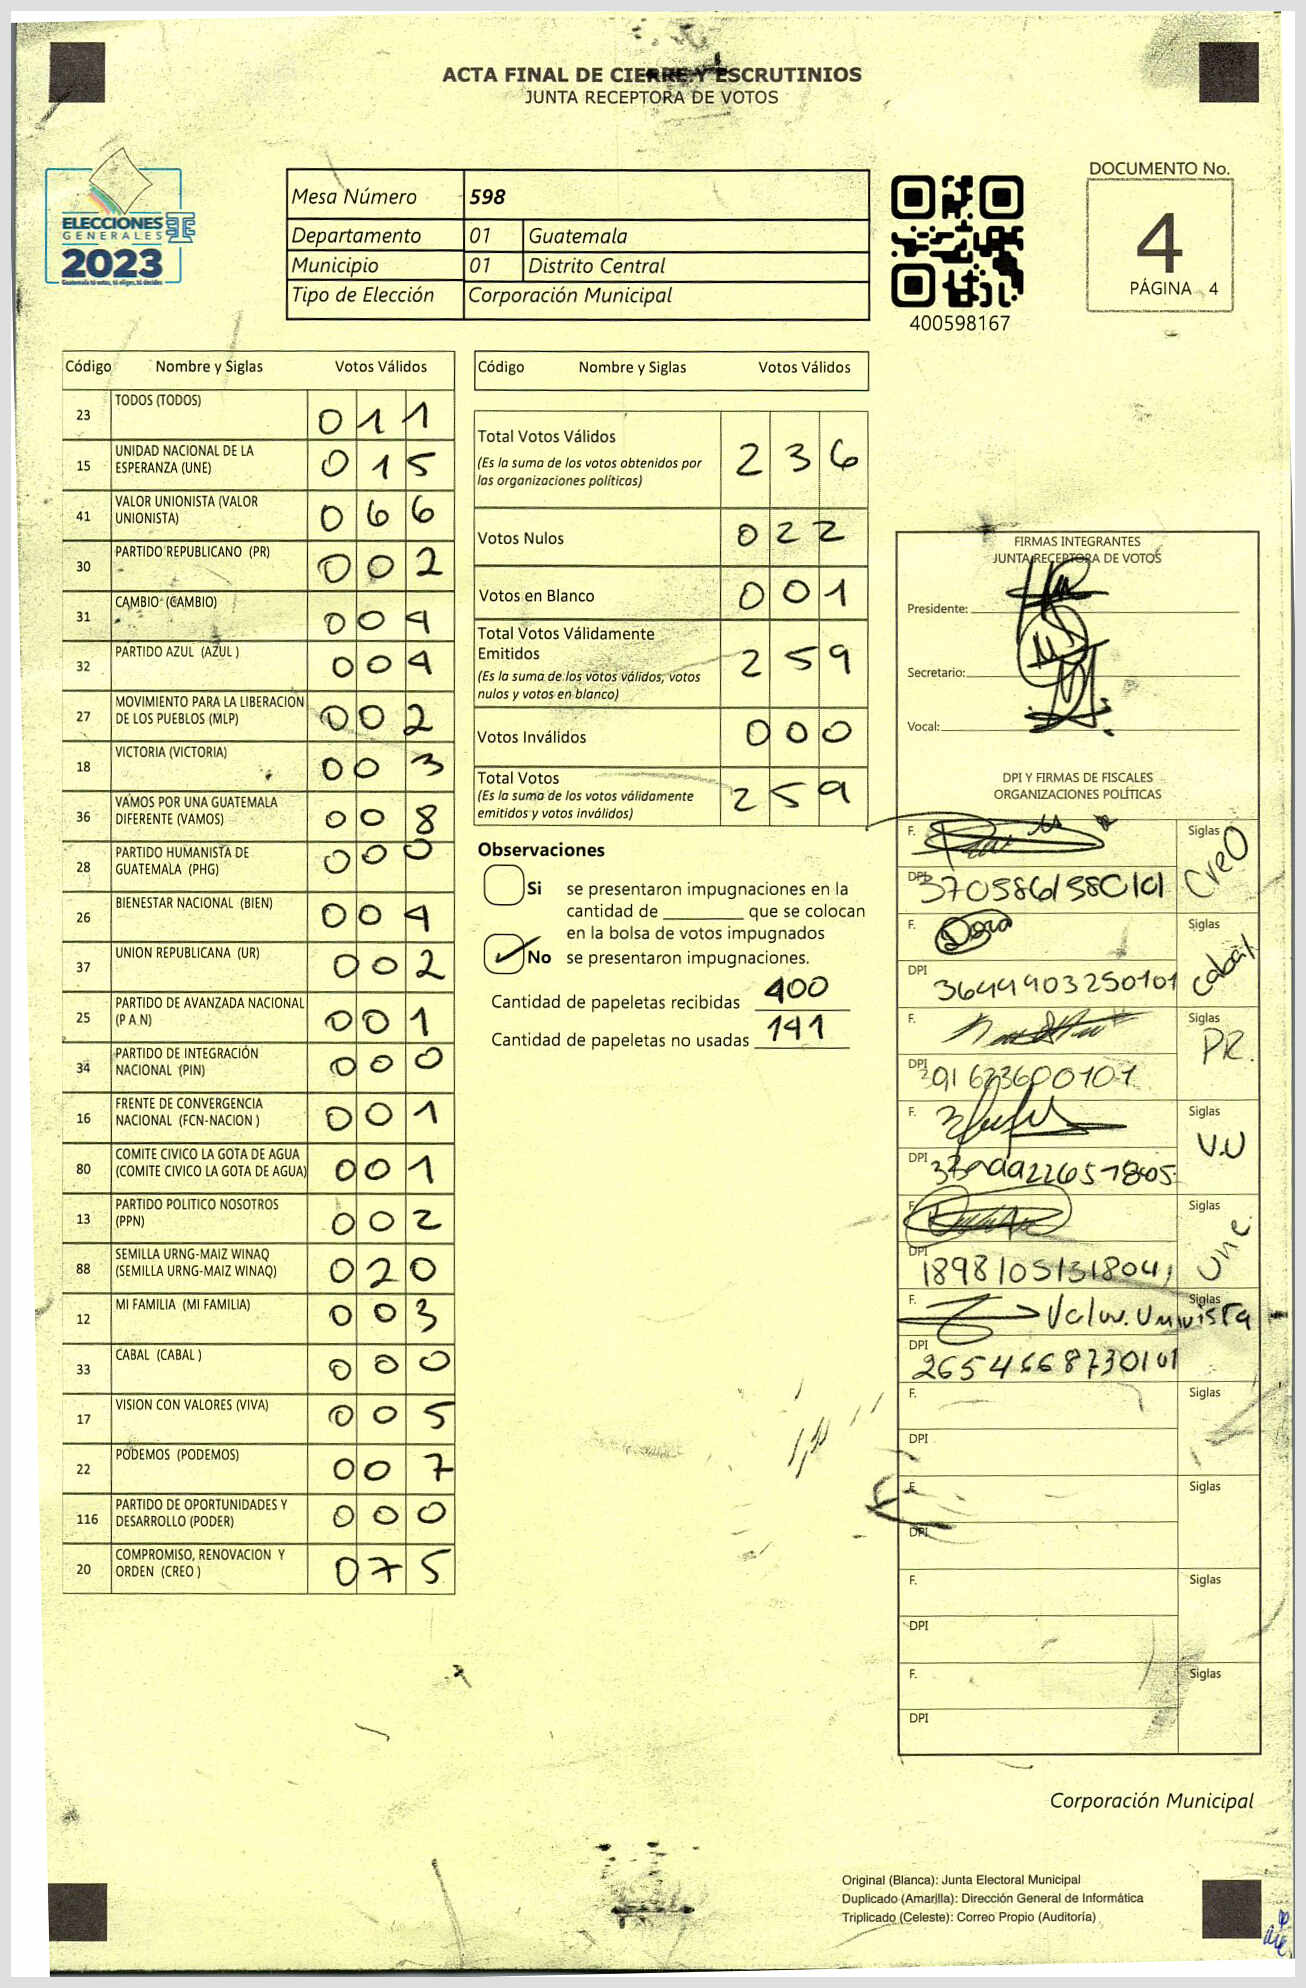 ACTA FINAL DE CIERRE Y ESCRUTINIOS
JUNTA RECEPTORA DE VOTOS
ELECCIONES
GENERALES
2023
Guatemala tú votas, tú eliges, tú decides
Mesa Número 598
Departamento 01 Guatemala
Municipio 01 Distrito Central
Tipo de Elección Corporación Municipal
400598167
DOCUMENTO No.
4
PÁGINA 4
Código Nombre y Siglas Votos Válidos
23 TODOS (TODOS) 0 1 1
15 UNIDAD NACIONAL DE LA ESPERANZA (UNE) 0 1 5
41 VALOR UNIONISTA (VALOR UNIONISTA) 0 6 6
30 PARTIDO REPUBLICANO (PR) 0 0 2
31 CAMBIO (CAMBIO) 0 0 4
32 PARTIDO AZUL (AZUL ) 0 0 4
27 MOVIMIENTO PARA LA LIBERACIÓN DE LOS PUEBLOS (MLP) 0 0 2
18 VICTORIA (VICTORIA) 0 0 3
36 VAMOS POR UNA GUATEMALA DIFERENTE (VAMOS) 0 0 8
28 PARTIDO HUMANISTA DE GUATEMALA (PHG) 0 0 0
26 BIENESTAR NACIONAL (BIEN) 0 0 4
37 UNION REPUBLICANA (UR) 0 0 2
25 PARTIDO DE AVANZADA NACIONAL (P A N) 0 0 1
34 PARTIDO DE INTEGRACIÓN NACIONAL (PIN) 0 0 0
16 FRENTE DE CONVERGENCIA NACIONAL (FCN-NACION ) 0 0 1
80 COMITE CIVICO LA GOTA DE AGUA (COMITE CIVICO LA GOTA DE AGUA) 0 0 1
13 PARTIDO POLITICO NOSOTROS (PPN) 0 0 2
88 SEMILLA URNG-MAIZ WINAQ (SEMILLA URNG-MAIZ WINAQ) 0 2 0
12 MI FAMILIA (MI FAMILIA) 0 0 3
33 CABAL (CABAL ) 0 0 0
17 VISION CON VALORES (VIVA) 0 0 5
22 PODEMOS (PODEMOS) 0 0 7
116 PARTIDO DE OPORTUNIDADES Y DESARROLLO (PODER) 0 0 0
20 COMPROMISO, RENOVACION Y ORDEN (CREO ) 0 7 5
Código Nombre y Siglas Votos Válidos
Total Votos Válidos 2 3 6
(Es la suma de los votos obtenidos por
las organizaciones políticas)
Votos Nulos 0 2 2
Votos en Blanco 0 0 1
Total Votos Válidamente
Emitidos 2 5 9
(Es la suma de los votos válidos, votos
nulos y votos en blanco)
Votos Inválidos 0 0 0
Total Votos 2 5 9
(Es la suma de los votos válidamente
emitidos y votos inválidos)
Observaciones
Si se presentaron impugnaciones en la
cantidad de ________ que se colocan
en la bolsa de votos impugnados
No se presentaron impugnaciones.
Cantidad de papeletas recibidas 400
Cantidad de papeletas no usadas 141
FIRMAS INTEGRANTES
JUNTA RECEPTORA DE VOTOS
Presidente:
Secretario:
Vocal:
DPI Y FIRMAS DE FISCALES
ORGANIZACIONES POLÍTICAS
F. Siglas CreO
DPI
F. Siglas cabal
DPI 3649903250101
F. Siglas PR.
DPI
F. Siglas V.U
DPI
F. Siglas Une
DPI
F. Valor Unionista Siglas
DPI 2654668730101
F. Siglas
DPI
F. Siglas
DPI
F. Siglas
DPI
F. Siglas
DPI
Corporación Municipal
Original (Blanca): Junta Electoral Municipal
Duplicado (Amarilla): Dirección General de Informática
Triplicado (Celeste): Correo Propio (Auditoría)